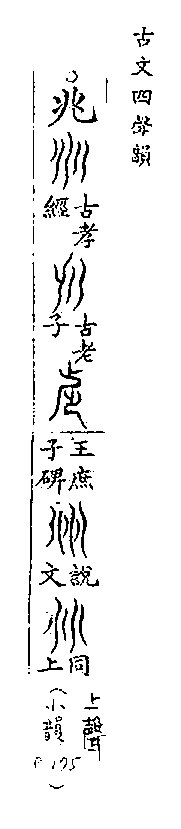 古文四聲韻
兆
古孝經
古老子
王庶子碑
說文
同上
上聲
(小韻
P 195)